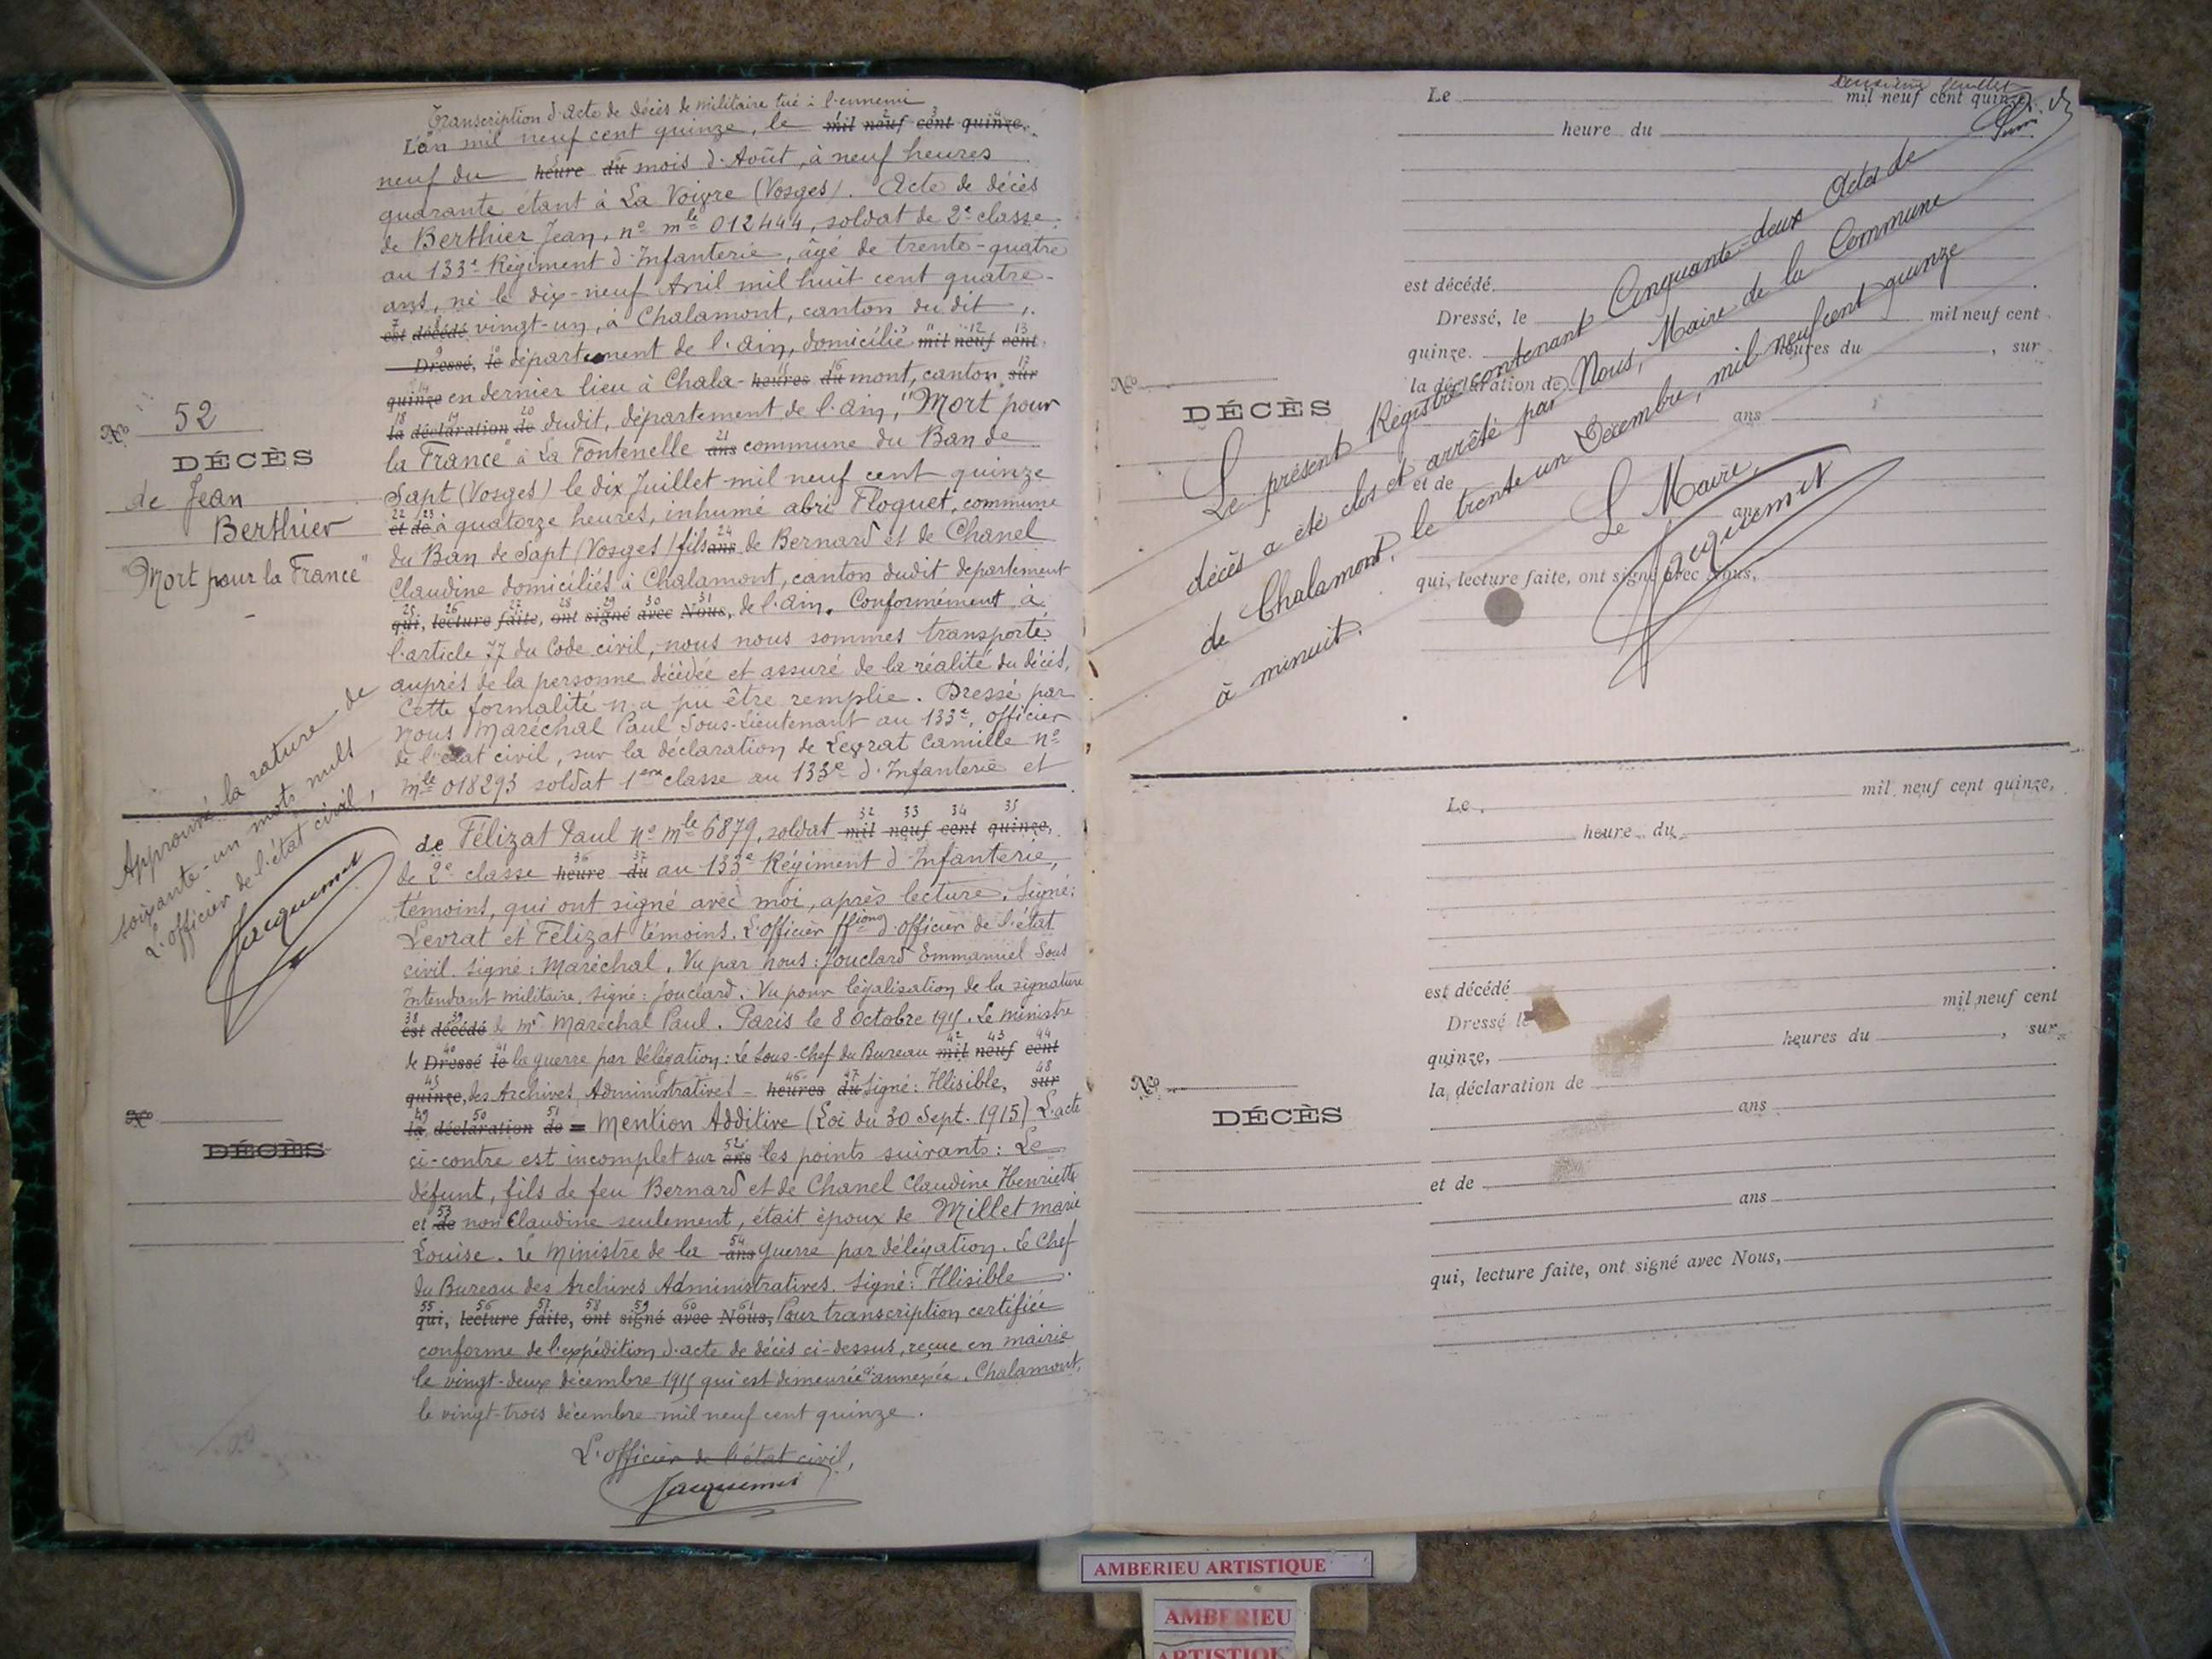 Transcription d'acte de décès de militaire tué à l'ennemi
L'an mil neuf cent quinze, le mil neuf cent quinze,
neuf du heure du mois d'Août, à neuf heures
quarante étant à La Voivre (Vosges). Acte de décès
de Berthier Jean, no mle 012444, soldat de 2e classe
au 133e Régiment d'Infanterie, âgé de trente-quatre
ans, né le dix-neuf Avril mil huit cent quatre-
est décédé vingt-un, à Chalamont, canton du dit,
Dressé, le département de l'Ain, domicilié mil neuf cent
quinze en dernier lieu à Chala- heures du mont, canton sur
la déclaration de dudit, département de l'Ain, "Mort pour
la France" à La Fontenelle ans commune du Ban de
Sapt (Vosges) le dix Juillet mil neuf cent quinze
et de à quatorze heures, inhumé abri Floquet, commune
du Ban de Sapt (Vosges) fils ans de Bernard et de Chanel
Claudine domiciliés à Chalamont, canton dudit département
qui, lecture faite, ont signé avec Nous, de l'Ain. Conformément à
l'article 77 du Code civil, nous nous sommes transporté
auprès de la personne décédée et assuré de la réalité du décès,
Cette formalité n'a pu être remplie. Dressé par
nous Maréchal Paul Sous-Lieutenant au 133e, officier
de l'état civil, sur la déclaration de Levrat Camille no
mle 018293 soldat 1ere classe au 133e d'Infanterie et
No 52
DÉCÈS
de Jean
Berthier
"Mort pour la France"
Approuvé la rature de
soixante-un mots nuls
L'officier de l'état civil,
Jacquemet
de Félizat Paul no mle 6879, soldat mil neuf cent quinze,
de 2e classe heure du au 133e Régiment d'Infanterie,
témoins, qui ont signé avec moi, après lecture. Signé:
Levrat et Félizat témoins. L'officier ffions d'officier de l'état
civil. signé: Maréchal. Vu par nous: Jouclard Emmanuel Sous
Intendant militaire, signé: Jouclard. Vu pour légalisation de la signature
est décédé de Mr Maréchal Paul. Paris le 8 Octobre 1915. Le ministre
de Dressé le la guerre par délégation: Le Sous-Chef du Bureau mil neuf cent
quinze, des Archives Administratives - heures du Signé: Illisible, sur
la déclaration de = Mention Additive (Loi du 30 Sept. 1915) L'acte
ci-contre est incomplet sur ans les points suivants: Le
défunt, fils de feu Bernard et de Chanel Claudine Henriette
et de non Claudine seulement, était époux de Millet marie
Louise. Le Ministre de la ans guerre par délégation. Le Chef
du Bureau des Archives Administratives. Signé: Illisible
qui, lecture faite, ont signé avec Nous, Pour transcription certifiée
conforme de l'expédition d'acte de décès ci-dessus, reçue en mairie
le vingt-deux décembre 1915 qui est demeurée annexée. Chalamont,
le vingt-trois décembre mil neuf cent quinze.
L'officier de l'état civil,
Jacquemet
No
DÉCÈS
Deuxième feuillet
Le mil neuf cent quinze,
heure du
est décédé
Dressé, le mil neuf cent
quinze. heures du , sur
la déclaration de
ans
et de
ans
qui, lecture faite, ont signé avec Nous,
No
DÉCÈS
Le présent Régistre contenant Cinquante-deux Actes de
décès a été clos et arrêté par Nous, Maire de la Commune
de Chalamont, le trente un Décembre, mil neuf cent quinze
à minuit.
Le Maire,
Jacquemet
Le mil neuf cent quinze,
heure du
est décédé
Dressé le mil neuf cent
quinze, heures du , sur
la déclaration de
ans
et de
ans
qui, lecture faite, ont signé avec Nous,
No
DÉCÈS
AMBERIEU ARTISTIQUE
AMBERIEU
ARTISTIQUE